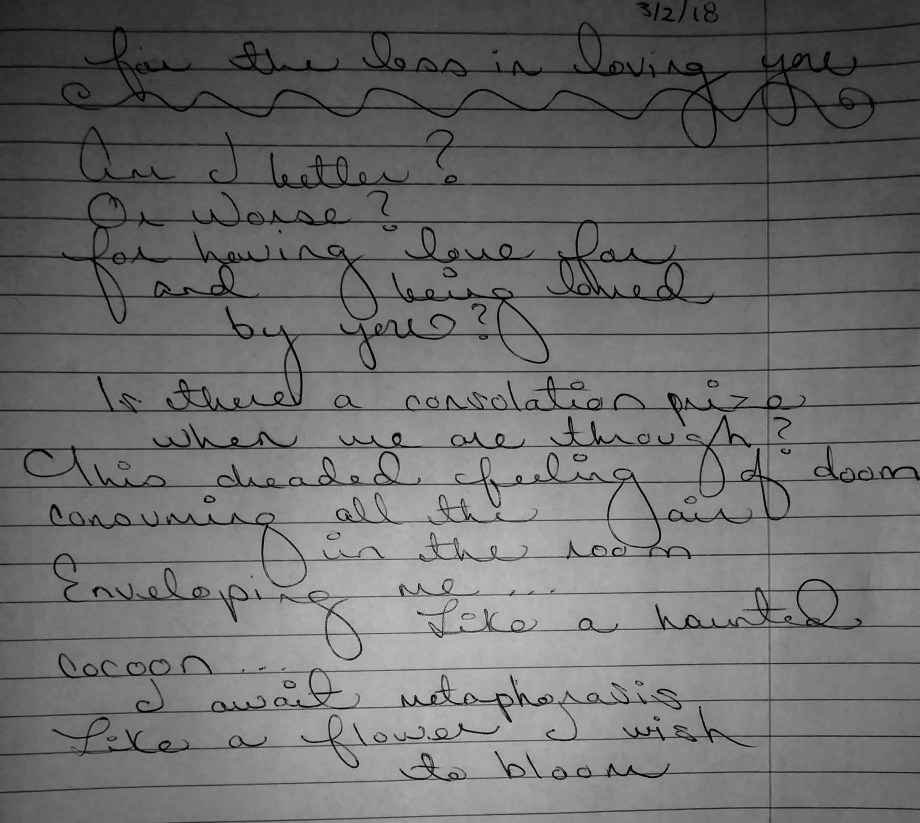 3/2/18
for the loss in loving you
Am I better?
Or worse?
for having love for
and being loved
by you?
Is there a consolation prize
when we are through?
This dreaded feeling of doom
consuming all the air
in the room
Enveloping me...
Like a haunted
cocoon...
I await metaphorasis
Like a flower I wish
to bloom